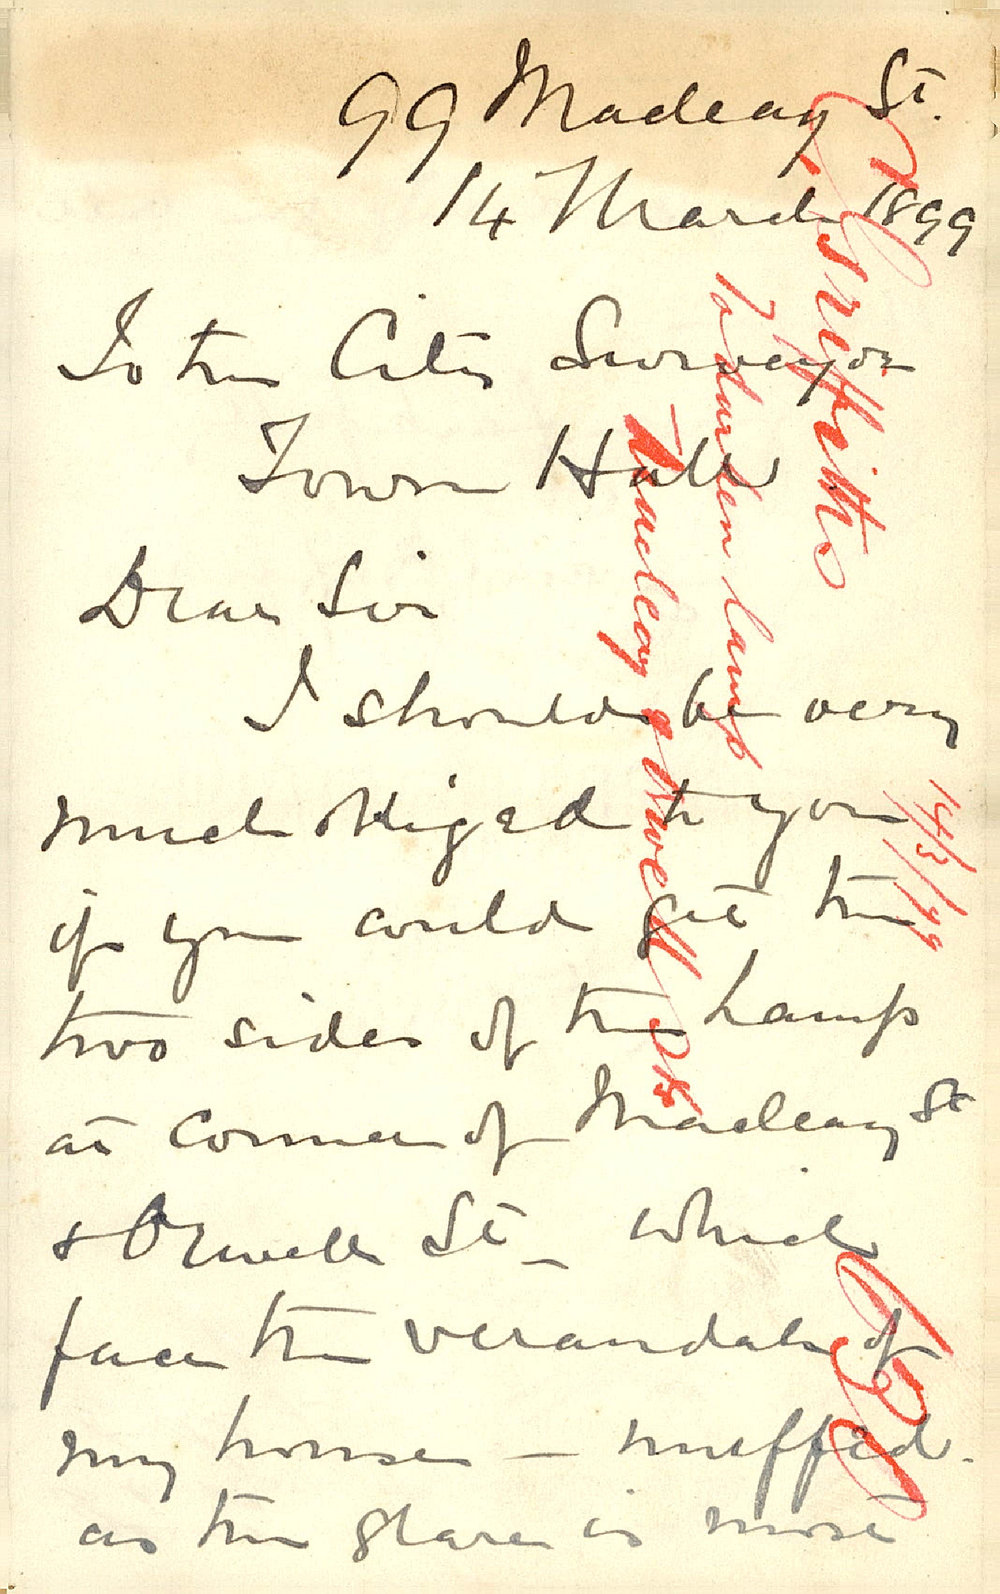 99 Macleay St.
14 March 1899
To the City Surveyor
Town Hall
Dear Sir
I should be very
much obliged to you
if you could get the
two sides of the Lamp
at corner of Macleay St
& Orwell St – which
face the verandah of
my house – muffed.
as the glare is most
Griffiths
To darken lamp
Macleay & Orwell Sts
14/3/99